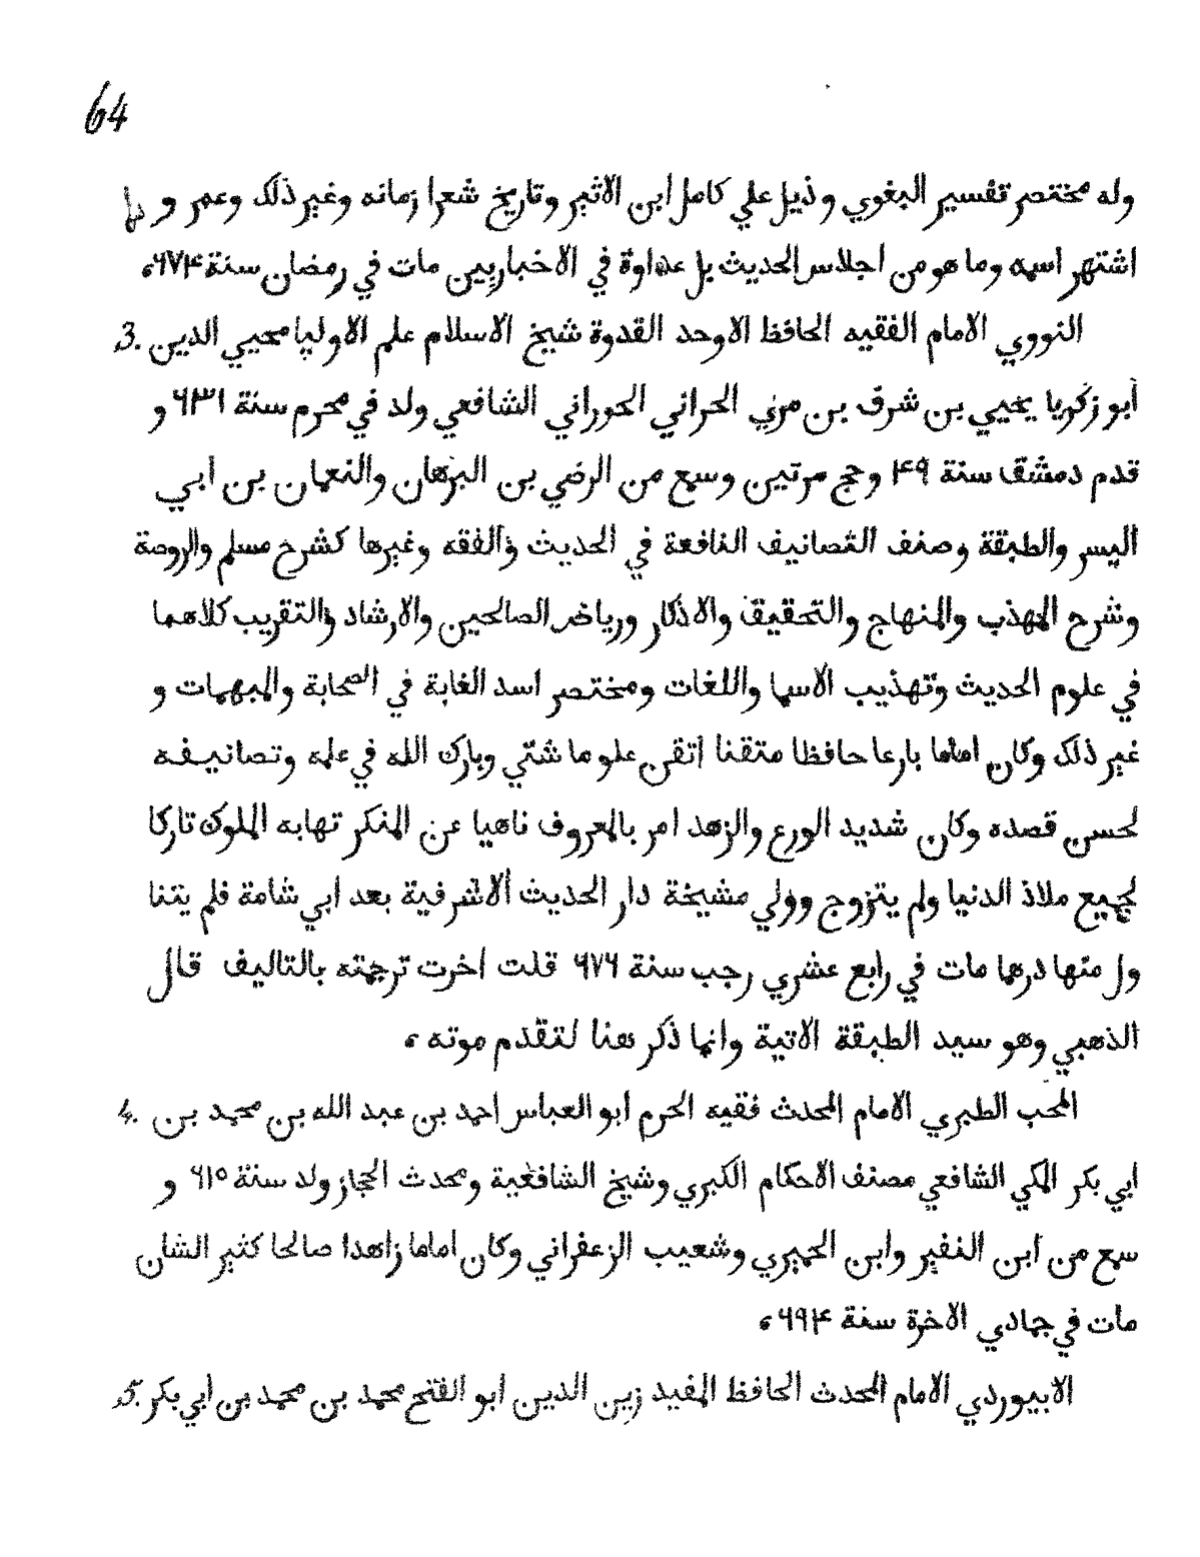 64
وله مختصر تفسير البغوي وذيل علي كامل ابن الاثير وتاريخ شعرا زمانه وغير ذلك وعمر و
اشتهر اسمه وما هو من اجلاس الحديث بل عداوة في الاخباريين مات في رمضان سنة ٦٧۴ء
3. النووي الامام الفقيه الحافظ الاوحد القدوة شيخ الاسلام علم الاوليا محيي الدين
أبو زكريا يحيي بن شرف بن مري الحراني الحوراني الشافعي ولد في محرم سنة ٦٣١ و
قدم دمشق سنة ۴٩ وحج مرتين وسمع من الرضي بن البرهان والنعمان بن ابي
اليسر والطبقة وصنف التصانيف النافعة في الحديث والفقه وغيرها كشرح مسلم والروصة
وشرح المهذب والمنهاج والتحقيق والاذكار ورياض الصالحين والارشاد والتقريب كلاهما
في علوم الحديث وتهذيب الاسما واللغات ومختصر اسد الغابة في الصحابة والمبهمات و
غير ذلك وكان اماما بارعا حافظا متقنا اتقن علو ما شتي وبارك الله في علمه وتصانيفه
لحسن قصده وكان شديد الورع والزهد امر بالمعروف ناهيا عن المنكر تهابه الملوك تاركا
لجميع ملاذ الدنيا ولم يتزوج وولي مشيخة دار الحديث الاشرفية بعد ابي شامة فلم يتنا
ول منها درهما مات في رابع عشري رجب سنة ٦٧٦ قلت اخرت ترجمته بالتاليف قال
الذهبي وهو سيد الطبقة الاتية وانما ذكر هنا لتقدم موته ء
4. المحب الطبري الامام المحدث فقيه الحرم ابو العباس احمد بن عبد الله بن محمد بن
ابي بكر المكي الشافعي مصنف الاحكام الكبري وشيخ الشافعية ومحدث الحجاز ولد سنة ٦١٥ و
سمع من ابن المقير وابن الجميزي وشعيب الزعفراني وكان اماما زاهدا صالحا كثير الشان
مات في جمادي الاخرة سنة ٦٩۴ء
5. الابيوردي الامام المحدث الحافظ المفيد زين الدين ابو الفتح محمد بن محمد بن ابي بكر